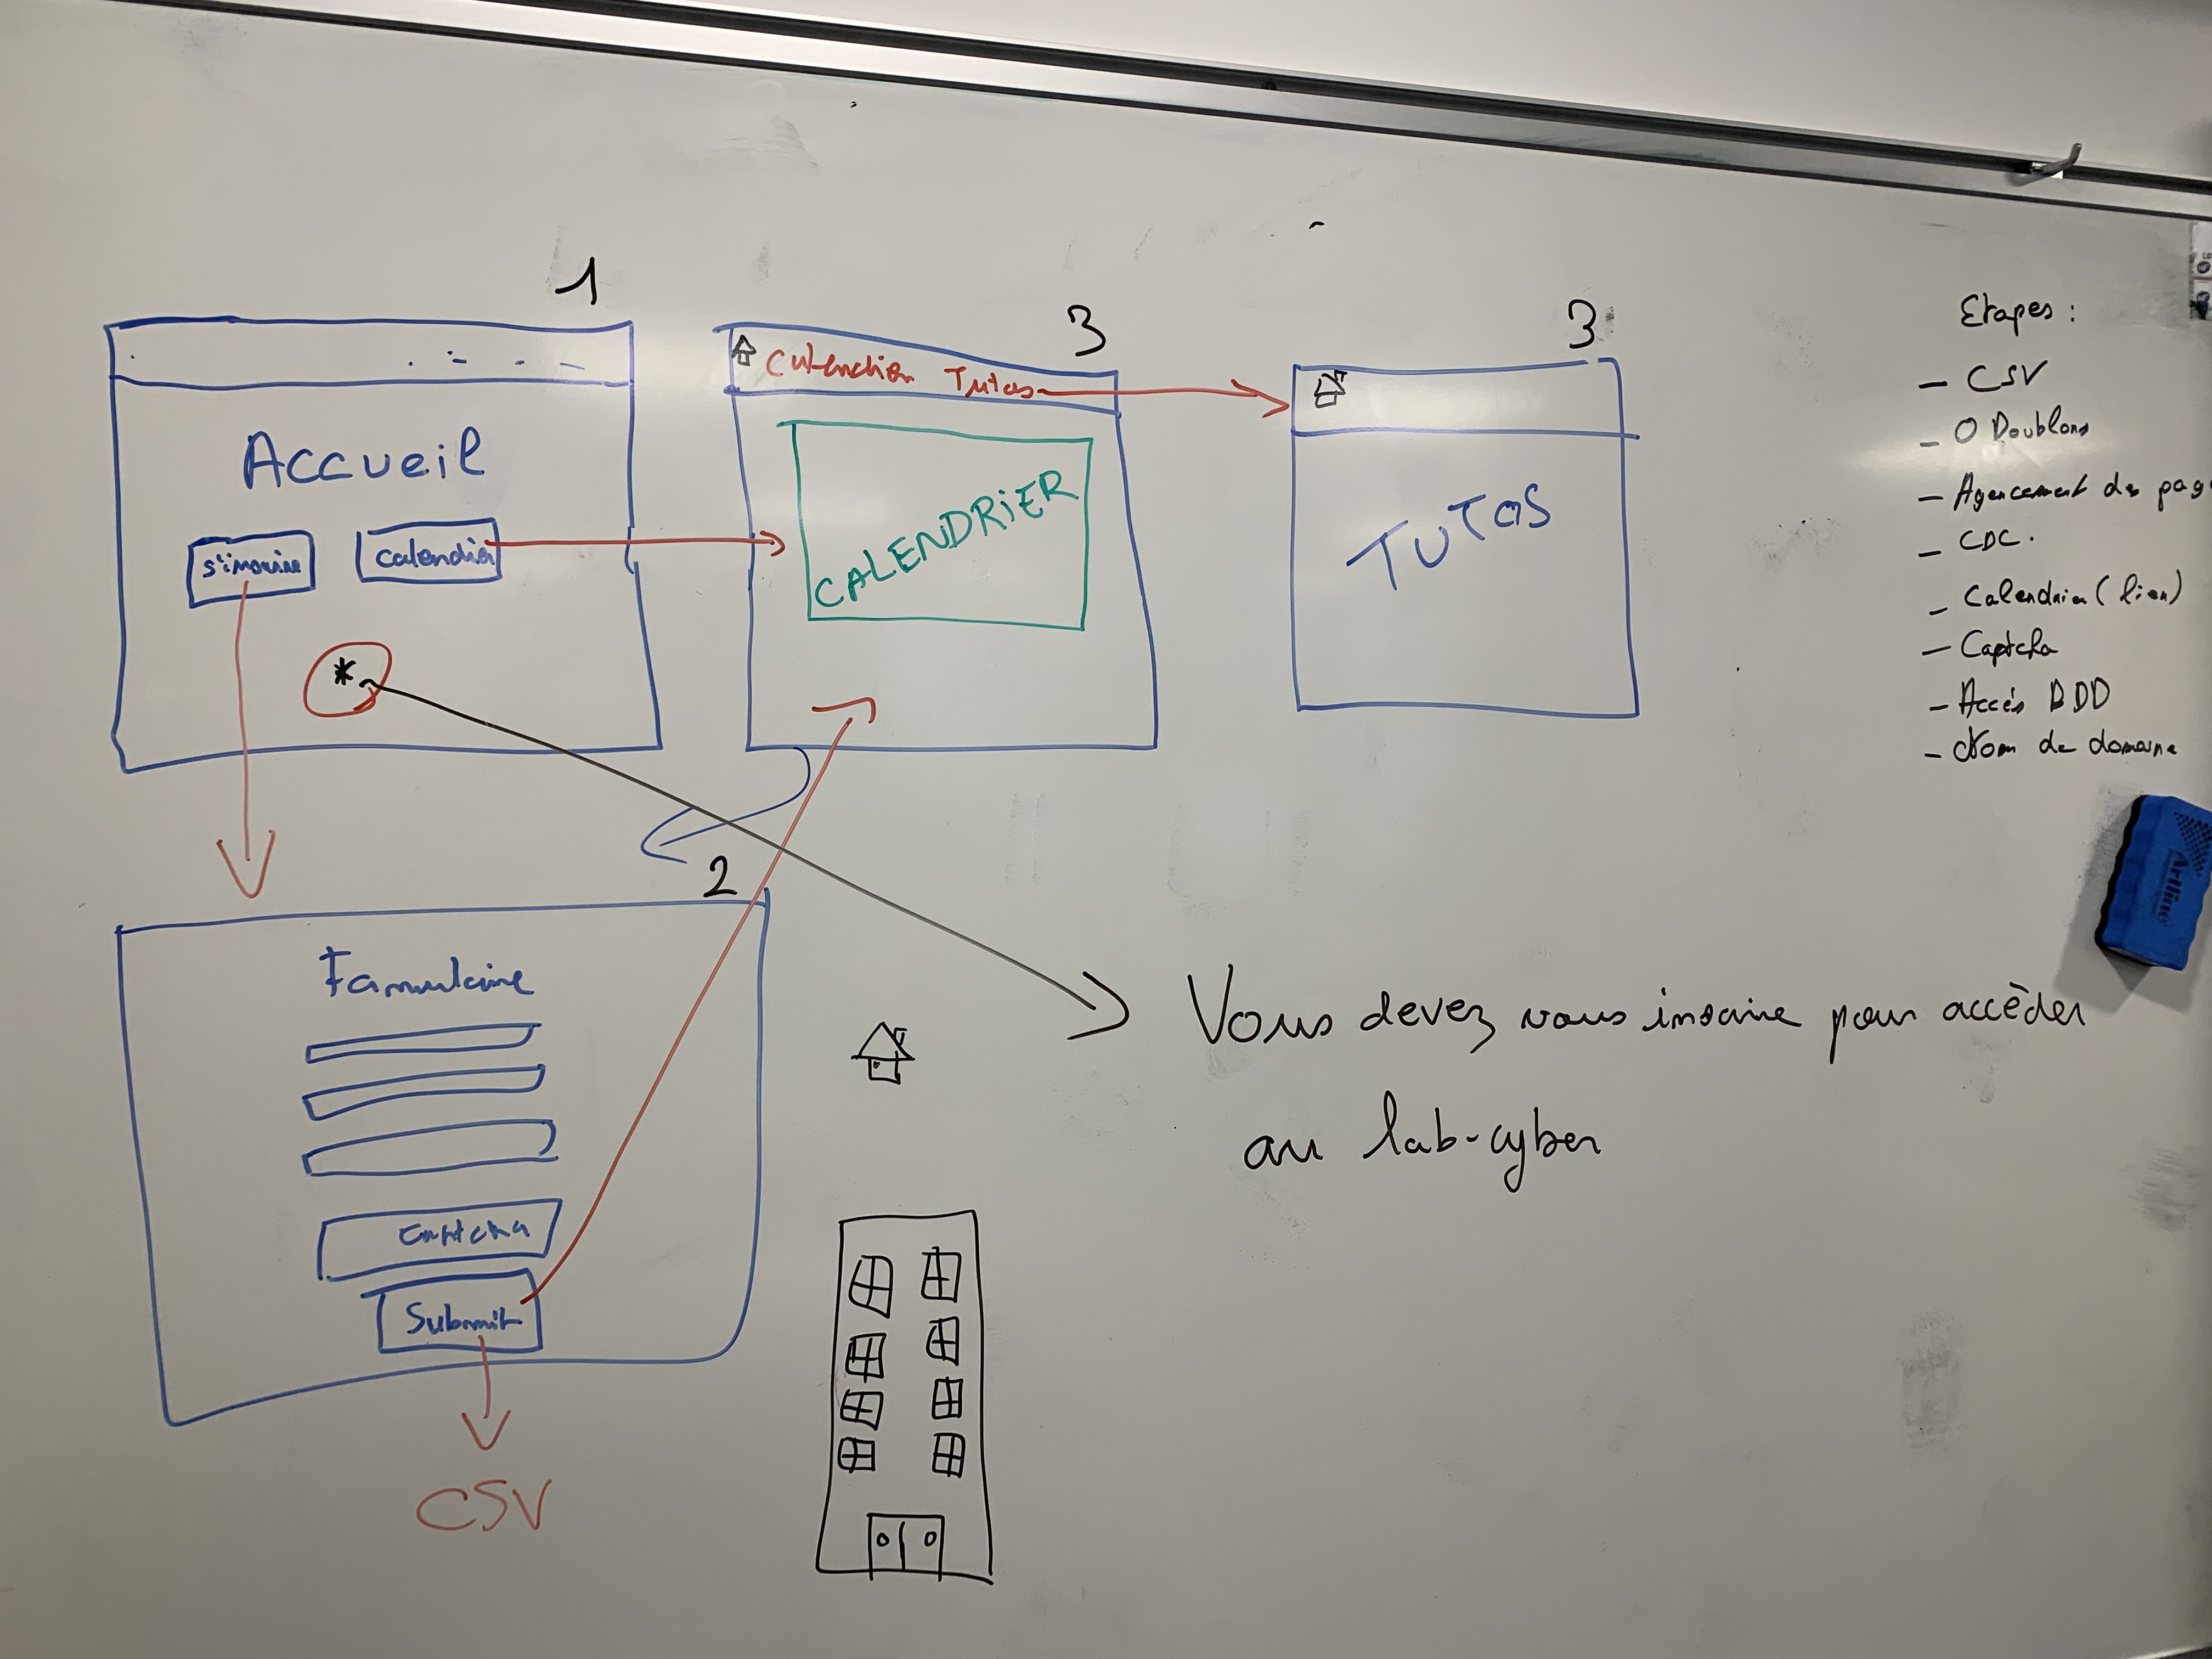 1
Accueil
s'inscrire
calendrier
*
3
Calendrier Tutos
CALENDRiER
3
TUTOS
Etapes :
- CSV
- 0 Doublons
- Agencement des pag
- CDC.
- Calendrier (lien)
- Captcha
- Accés BDD
- Nom de domaine
Artline
2
Formulaire
Captcha
Submit
CSV
Vous devez vous inscrire pour accèder
au lab-cyber